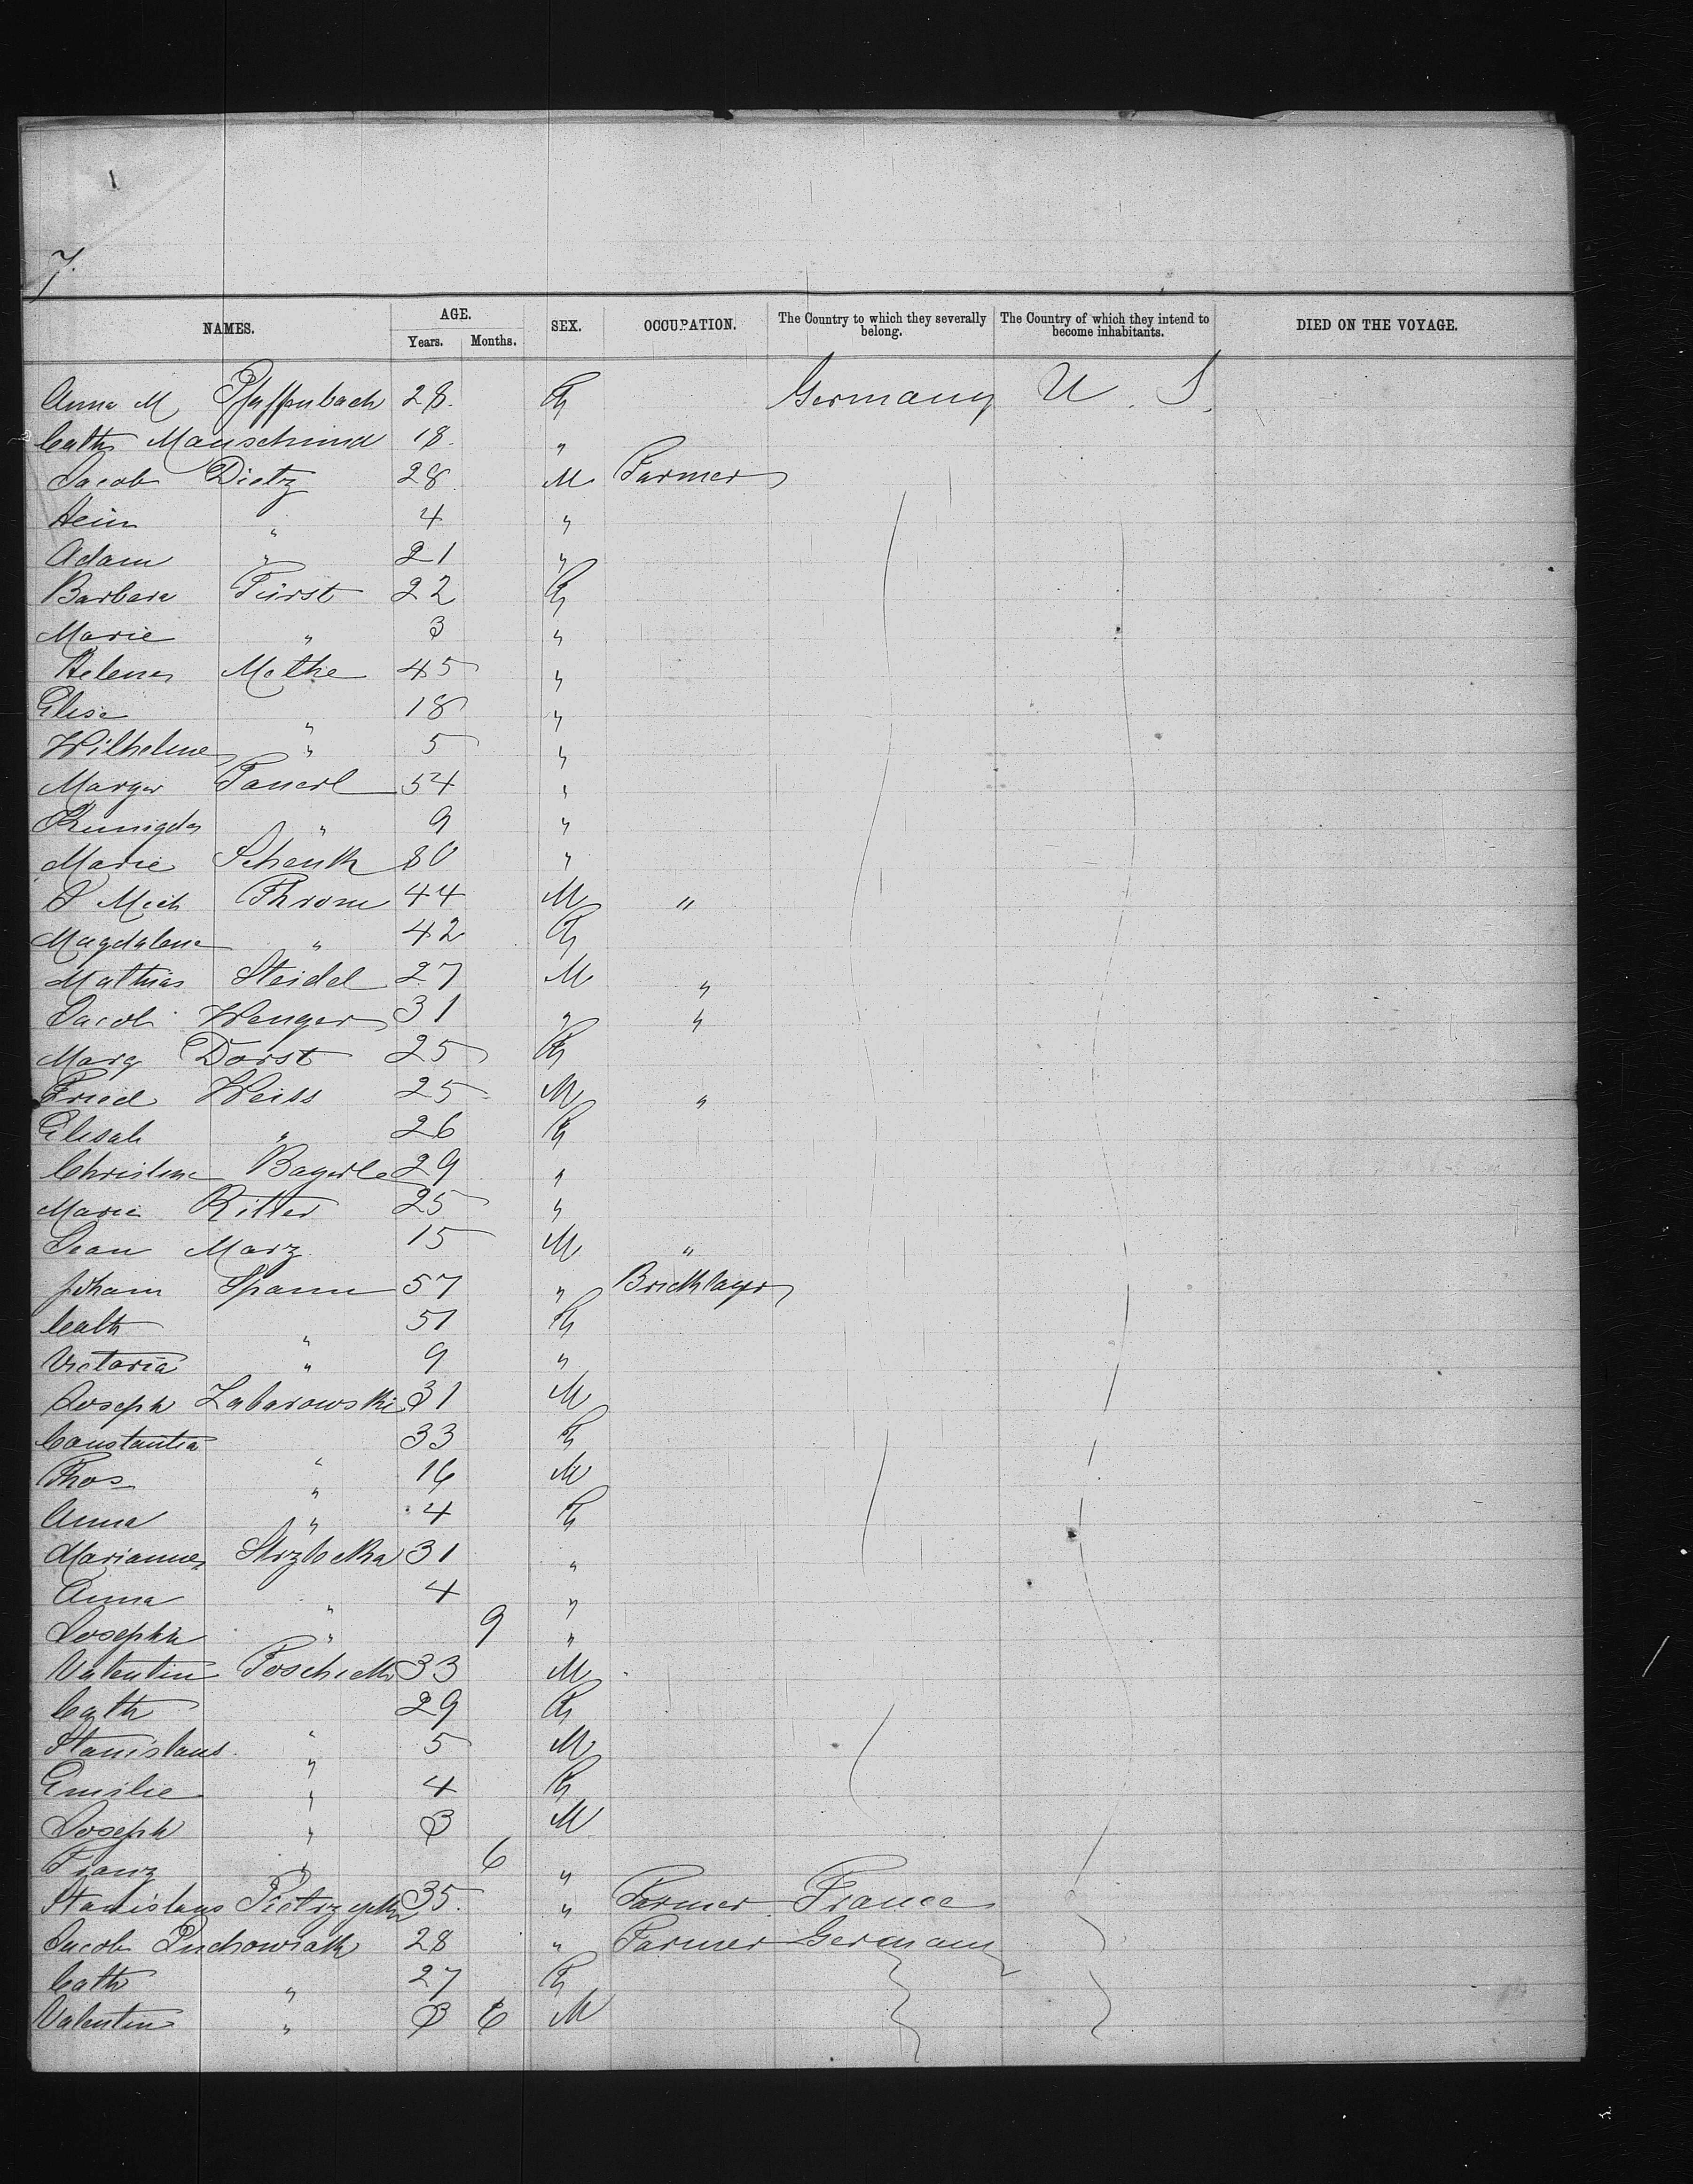 7.
NAMES. AGE. Years. Months. SEX. OCCUPATION. The Country to which they severally belong. The Country of which they intend to become inhabitants. DIED ON THE VOYAGE.
Anna M Pfaffenbach 28. F Germany U. S.
Cath 18. "
Jacob Dietz 28 M Farmer
Hein " 4 "
Adam " 21 "
Barbara Fürst 22 F
Marie " 3 "
Helena Mothe 45 "
Elise " 18 "
Wilhelme " 5 "
Margr 54 "
Kunigda " 9 "
Marie Schenk 80 "
J Mich Throm 44 M "
Magdalena " 42 F
Mathias Steidel 27 M "
Jacob Wenger 31 " "
Marg Dorst 25 F
Fried Weiss 25 M "
Elisab " 26 F
Christine Bayerle 29 "
Marie Ritter 25 "
Jean Marz 15 M "
Joham Spann 57 " Bricklayer
Cath " 51 F
Victoria " 9 "
Joseph Zabarowski 31 M
Constantia " 33 F
Thos " 16 M
Anna " 4 F
Marianna 31 "
Anna " 4 "
Josepha " 9 "
Valentin 33 M
Cath " 29 F
Stanislaus " 5 M
Emilie " 4 F
Joseph " 3 M
Franz " 6 "
Stanislaus 35. " Farmer France
Jacob Puchowiak 28 " Farmer Germany
Cath " 27 F
Valentin " 6 M